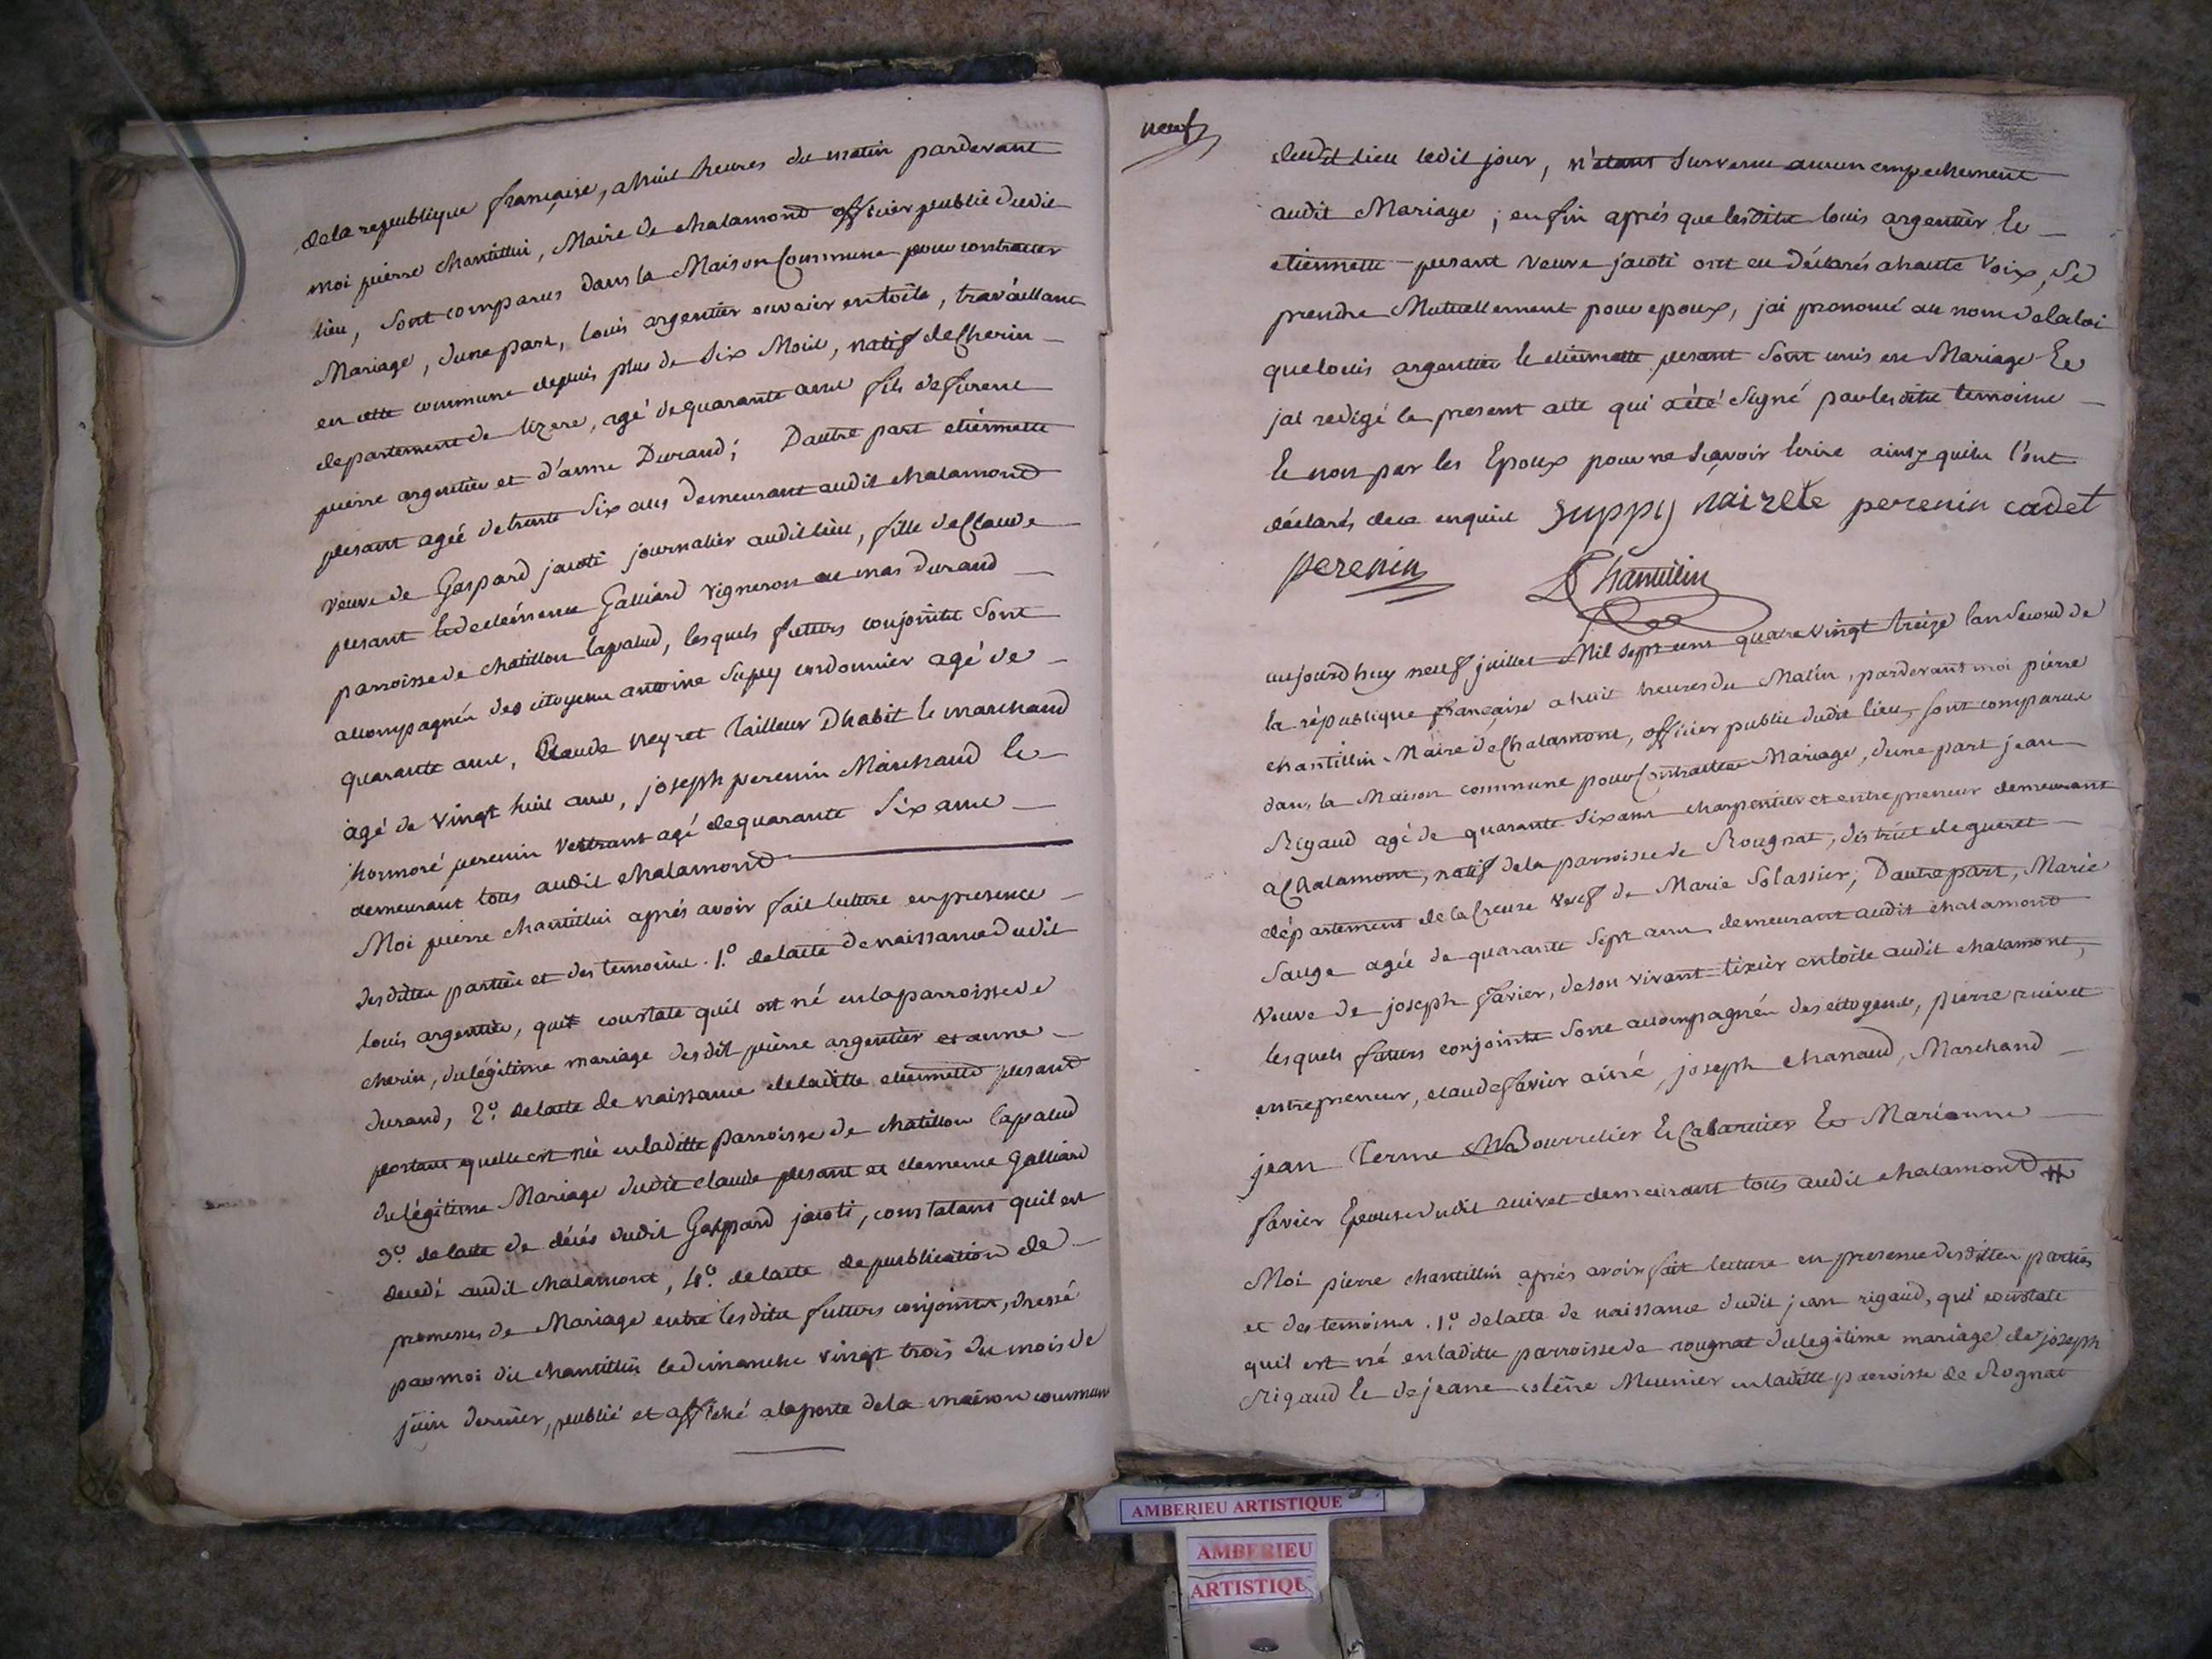 de la republique française, a huit heures du matin pardevant
moi pierre chantillin, Maire de chalamond officier public dudit
lieu, sont comparus dans la Maison Commune pour contracter
Mariage, dune part, louis argentier ouvrier en toile, travaillant
en cette commune depuis plus de six Mois, natif de Cherin
departement de lizere, agé de quarante ans fils de furent
pierre argentier et d'anne Durand; Dautre part etiennette
pesant agée de trente six ans demeurant audit chalamond
veuve de Gaspard jacoti journalier audit lieu, fille de Claude
pesant et de clémence Galliard vigneron au mas durand
parroisse de chatillon lapalud, lesquels futurs conjoints sont
accompagnés des citoyens antoine supey cordonnier agé de
quarante ans, Claude neyret tailleur Dhabit et marchand
agé de vingt huit ans, joseph perenin Marchand et
honnoré perenin agé de quarante six ans
demeurant tous audit chalamond
Moi pierre chantillin aprés avoir fait lecture en presence
desdittes parties et des temoins. 1.° de lacte de naissance dudit
louis argentier, qui constate quil est né en la parroisse de
cherin, du légitime mariage desdit pierre argentier et anne
durand, 2.° de lacte de naissance de laditte etiennette pesant
portant quelle est née en laditte parroisse de chatillon lapalud
du légitime Mariage dudit claude pesant et clemence Galliard
3.° de lacte de décés dudit Gaspard jacoti, constatant quil est
decedé audit chalamont, 4.° de lacte de publication de
promesses de Mariage entre lesdits futurs conjoints, dressé
par moi dit chantillin le dimanche vingt trois du mois de
juin dernier, publié et affiché a la porte de la maison commune
neuf
dudit lieu ledit jour, n'etant survenu aucun empechement
audit Mariage; enfin aprés que lesdits louis argentier et
etiennette pesant veuve jacoti ont eu déclarés a haute voix, se
prendre Mutuellement pour epoux, jai prononcé au nom de la loi
que louis argentier et etiennette pesant sont unis en Mariage Et
jai redigé le present acte qui a été signé par lesdits temoins
et non par les Epoux pour ne sçavoir ecrire ainsy quils l'ont
déclarés de ce enquis suppy nairete perenin cadet
perenin Chantillin
aujourdhuy neuf juillet Mil sept cent quatre vingt treize lan second de
la république française a huit heures du Matin, pardevant moi pierre
chantillin Maire de Chalamont, officier public dudit lieu, sont comparus
dans la Maison commune pour Contracter Mariage, dune part jean
Rigaud agé de quarante six ans charpentier et entrepreneur demeurant
a Chalamont, natif de la parroisse de Rougnat, district de gueret
département de la Creuse veuf de Marie Solassier; Dautre part, Marie
Sauge agée de quarante sept ans demeurant audit chalamond
veuve de joseph favier, de son vivant tixier en toile audit chalamont,
lesquels futurs conjoints sont accompagnés des citoyens, pierre ruivet
entrepreneur, claude favier ainé, joseph chanaud, Marchand
jean Terme Bourrelier Et Cabaretier Et Marianne
favier Epouse dudit ruivet demeurant tous audit chalamond
Moi pierre chantillin aprés avoir fait lecture en presence desdittes parties
et des temoins. 1.° de lacte de naissance dudit jean rigaud, qui constate
quil est né en laditte parroisse de rougnat du legitime mariage de joseph
Rigaud Et de jeanne Meunier en laditte parroisse de Rognat
AMBERIEU ARTISTIQUE
AMBERIEU
ARTISTIQU